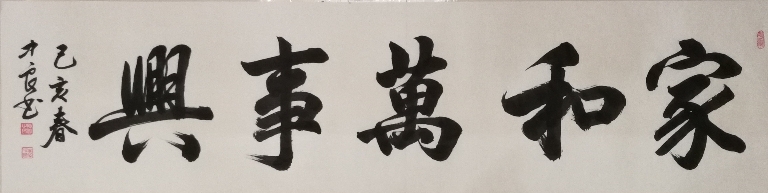 家和萬事興
己亥春
才良书